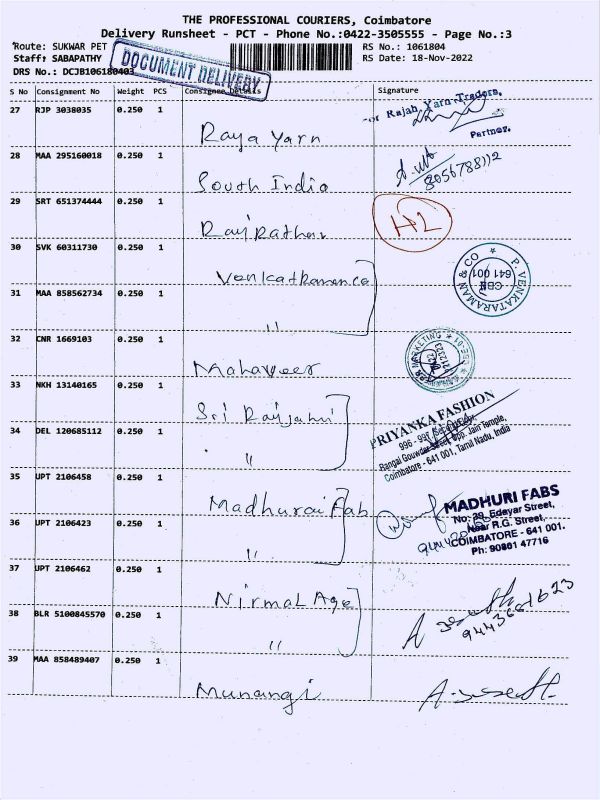 THE PROFESSIONAL COURIERS, Coimbatore
Delivery Runsheet - PCT - Phone No.:0422-3505555 - Page No.:3
Route: SUKWAR PET
RS No.: 1061804
Staff: SABAPATHY
RS Date: 18-Nov-2022
DRS No.: DCJB106180403
DOCUMENT DELIVERY
S No Consignment No Weight PCS Consignee Details Signature
27 RJP 3038035 0.250 1
Raya Yarn
For Rajah Yarn Traders,
Partner.
28 MAA 295160018 0.250 1
South India
8056788112
29 SRT 651374444 0.250 1
Raj Rathar
H2
30 SVK 60311730 0.250 1
Venkatraman co
P. VENKATARAMAN & CO
CBE
641 001
31 MAA 858562734 0.250 1
"
32 CNR 1669103 0.250 1
Mahaveer
MARKETING
33 NKH 13140165 0.250 1
Sri Rajjahni
PRIYANKA FASHION
Rangai Gowder Street Opp. Jain Temple,
Coimbatore - 641 001, Tamil Nadu, India
34 DEL 120685112 0.250 1
"
35 UPT 2106458 0.250 1
Madhurai Fab
MADHURI FABS
No: 39, Edayar Street,
Near R.G. Street,
COIMBATORE - 641 001.
Ph: 90801 47716
36 UPT 2106423 0.250 1
"
37 UPT 2106462 0.250 1
Nirmal Age
38 BLR 5100845570 0.250 1
"
39 MAA 858489407 0.250 1
Munangi